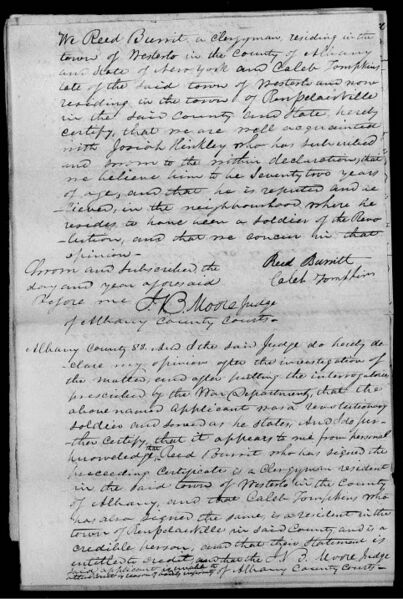 We Reed Burrit, a Clergyman, residing in the
town of Westerlo in the County of Albany
and State of New York and Caleb Tompkins
late of the said town of Westerlo and now
residing in the town of Renselairville
in the said County and State, hereby
certify, that we are well acquainted
with Josiah Hinkley who has subscribed
and sworn to the within declaration, that
we believe him to be Seventy two years
of age, and that he is reputed and be
=lieved, in the neighbourhood, where he
resides to have been a soldier of the Revo
=lution, and that we concur in that
opinion -
Sworn and Subscribed the
day and year aforesaid
Before me
Reed Burritt
Caleb Tompkins
J. B. Moore Judge
of Albany County Courts -
Albany County SS. And I the said Judge do hereby de
clare my opinion after the investigation of
the matter, and after putting the interrogatories
prescribed by the War Department, that the
above named Applicant was a revolutionary
soldier and served as he states. And I do fur-
=ther Certify, that it appears to me from personal
knowledge that Reed Burrit who has signed the
preceeding Certificate is a Clergyman resident
in the said town of Westerlo in the County
of Albany, and that Caleb Tompkins who
has also signed the same, is a resident in the
town of Renselairville in said County and is a
credible person, and that their Statement is
entitled to credit and that the
said applicant is unable to
attend court by reason of bodily infirmity
J. B. Moore Judge
of Albany County Courts -